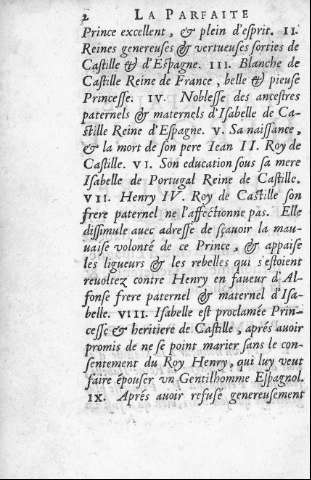 2 LA PARFAITE
Prince excellent, & plein d'esprit. II.
Reines genereuses & vertueuses sorties de
Castille & d'Espagne. III. Blanche de
Castille Reine de France, belle & pieuse
Princesse. IV. Noblesse des ancestres
paternels & maternels d'Isabelle de Ca-
stille Reine d'Espagne. V. Sa naissance,
& la mort de son pere Iean II. Roy de
Castille. VI. Son education sous sa mere
Isabelle de Portugal Reine de Castille.
VII. Henry IV. Roy de Castille son
frere paternel ne l'affectionne pas. Elle
dissimule auec adresse de sçauoir la mau-
uaise volonté de ce Prince, & appaise
les ligueurs & les rebelles qui s'estoient
reuoltez contre Henry en faueur d'Al-
fonse frere paternel & maternel d'Isa-
belle. VIII. Isabelle est proclamée Prin-
cesse & heritiere de Castille, aprés auoir
promis de ne se point marier sans le con-
sentement du Roy Henry, qui luy veut
faire épouser vn Gentilhomme Espagnol.
IX. Aprés auoir refusé genereusement